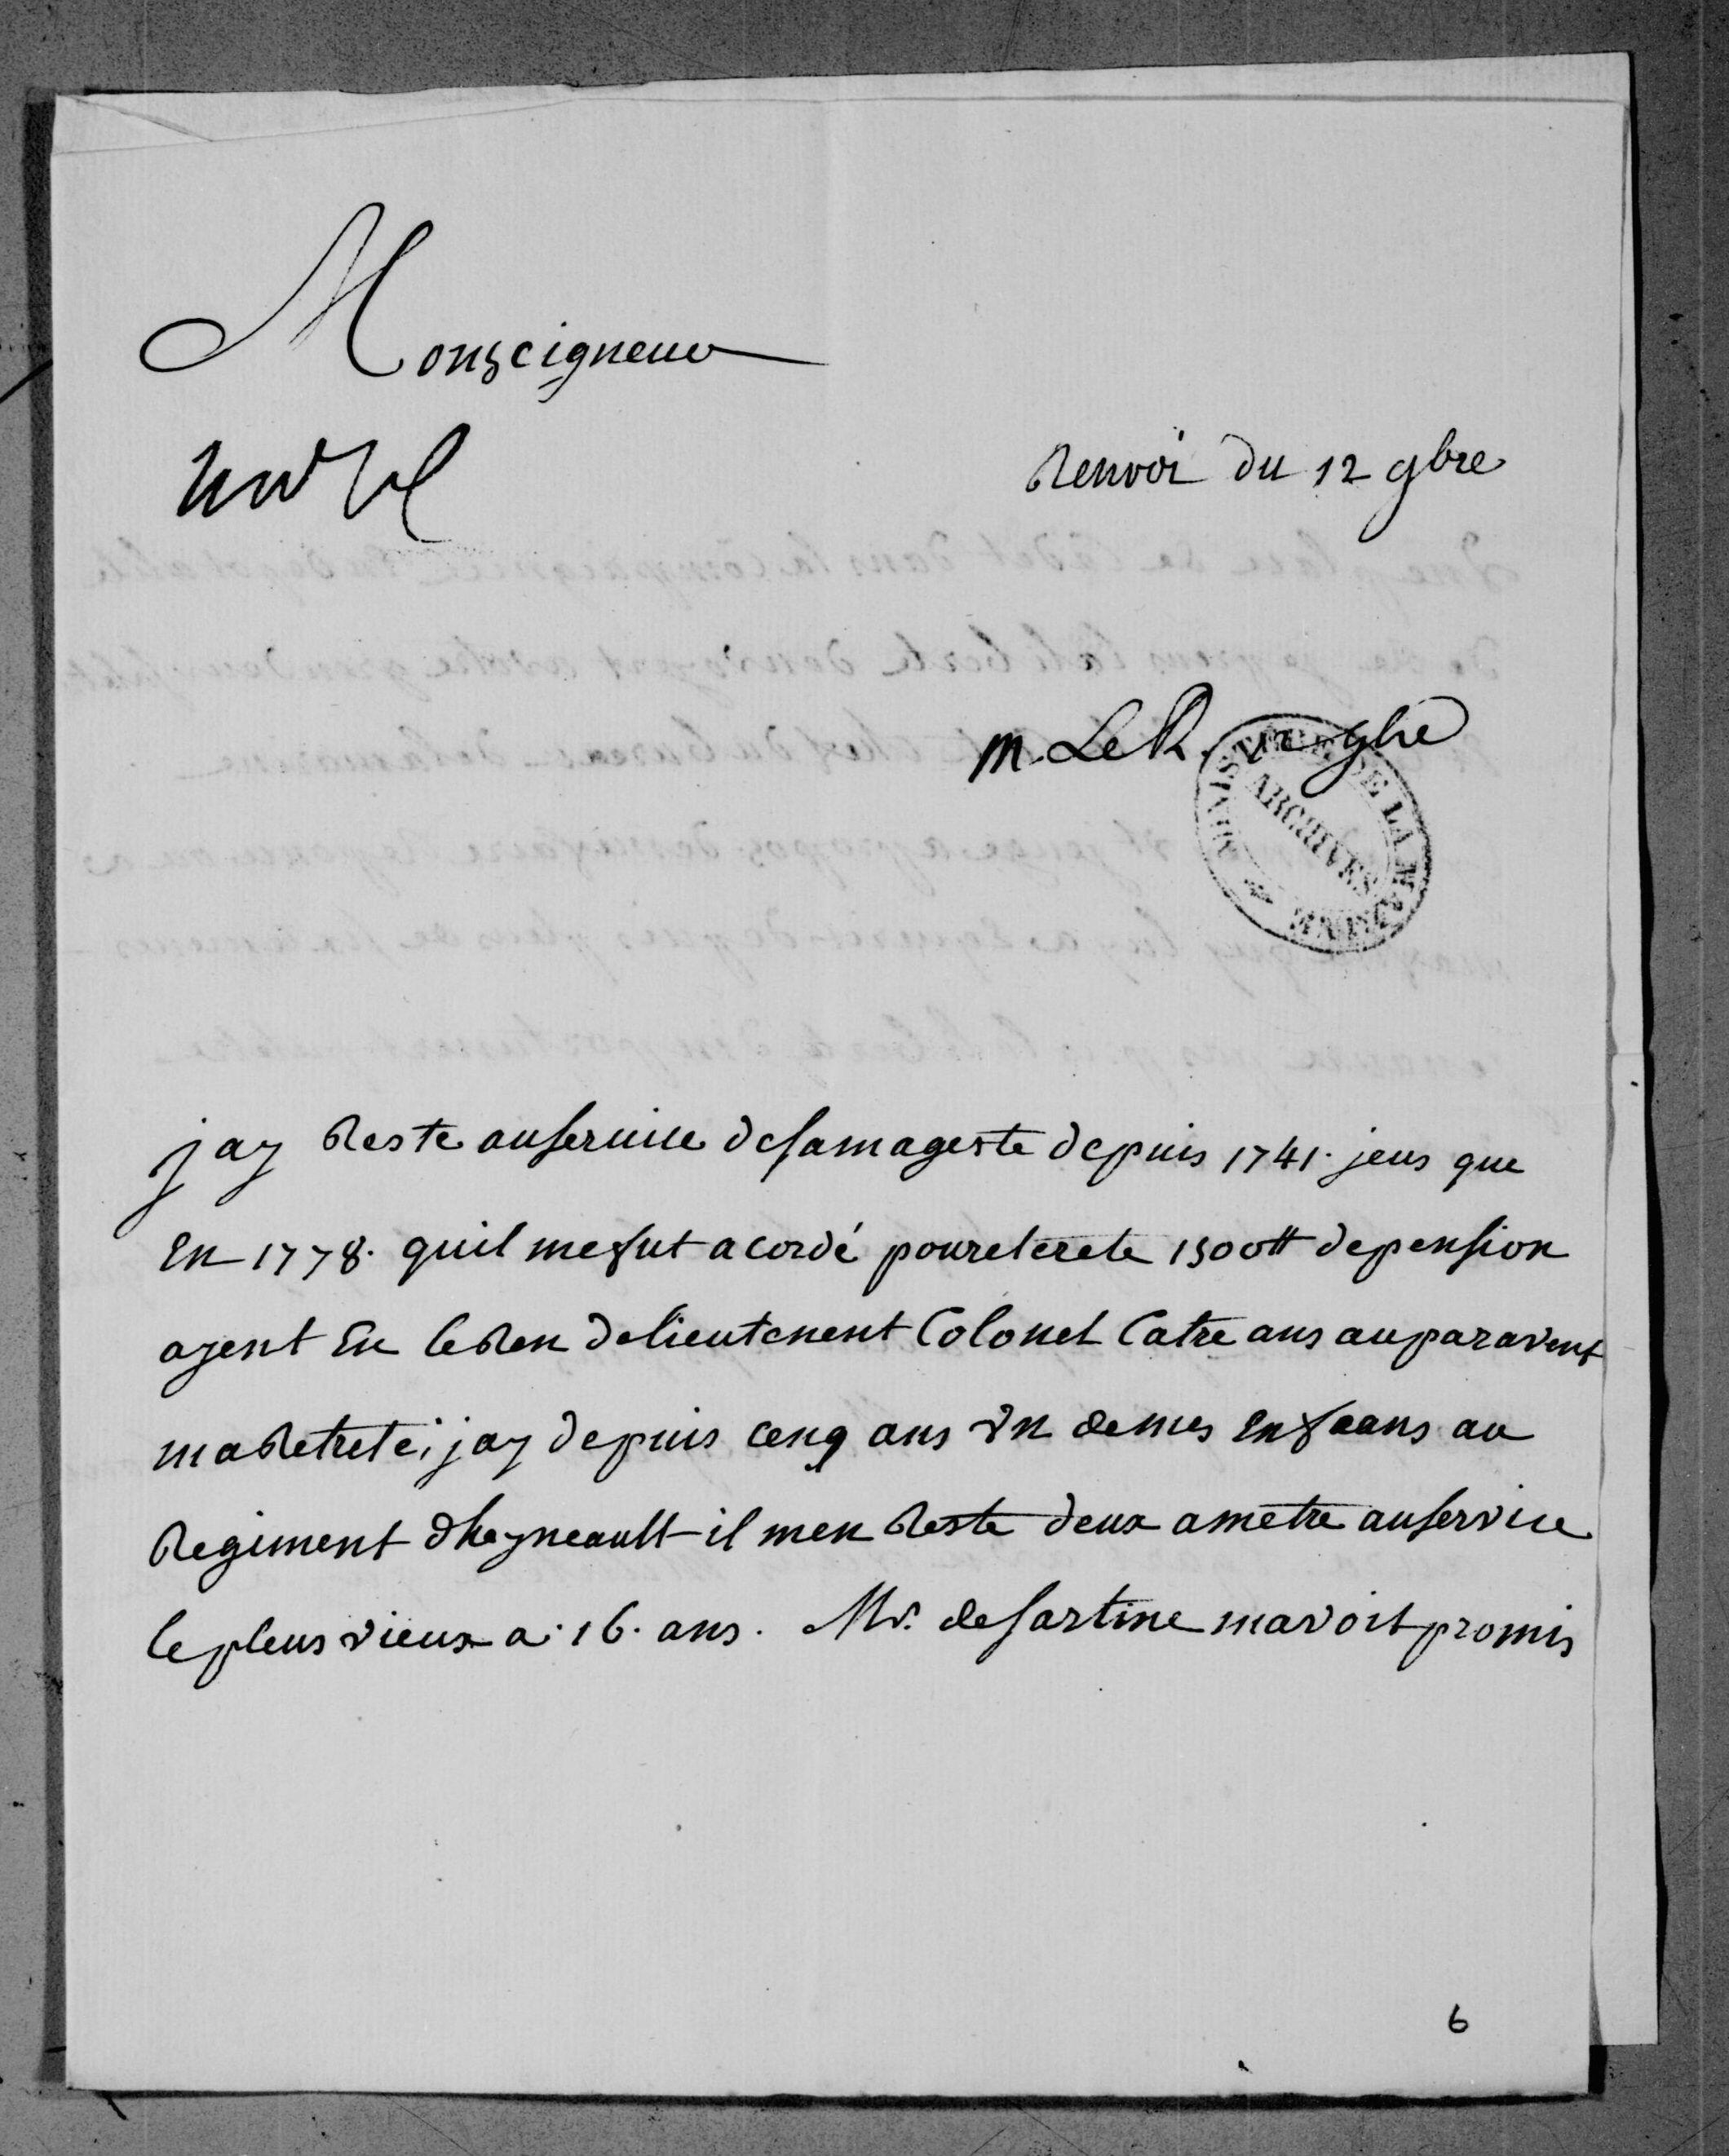 Monseigneur
Renvoi du 12 9bre
M. Le R. 12 9bre
MINISTÈRE DE LA MARINE
ARCHIVES
jay Reste auservice desamageste depuis 1741. jeus que
En 1778. quil mefut acordé poureterete 1500tt depension
ayent Eu leRen delieutenent Colonel Catre ans auparavent
maRetrete; jay depuis cenq ans Un demes Enfaans au
Regiment dhayneault il men Reste deux ametre auservice
lepleus vieux a. 16. ans. Mr. desartine mavoit promis
6